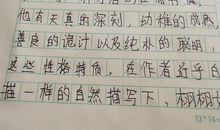 他有天真的深刻，幼稚的成熟，
善良的诡计以及纯朴的聪明
这些性格特质，在作者近乎白
描一样的自然描写下，栩栩
13*14=